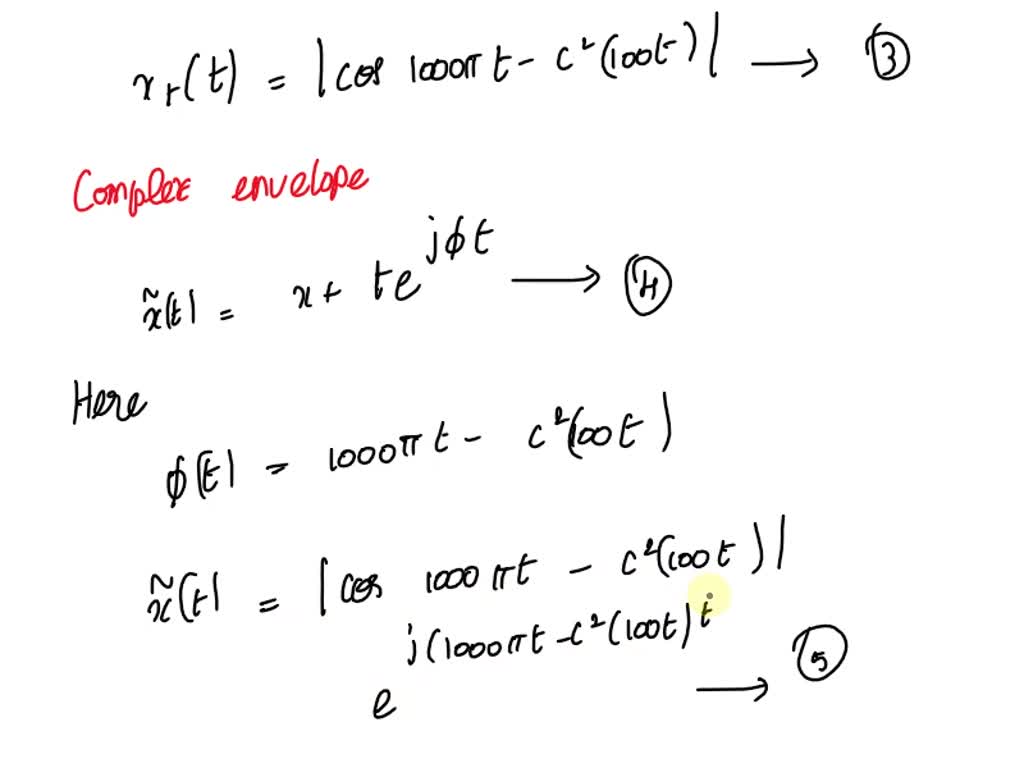 x_r(t) = |cos 1000π t - c²(100t)| → ③
Complex envelope
x̃(t) = x + t e^{jϕt} → ④
Here
ϕ(t) = 1000π t - c²(100t)
x̃(t) = |cos 1000πt - c²(100t)|
e^{j(1000πt - c²(100t)t} → ⑤